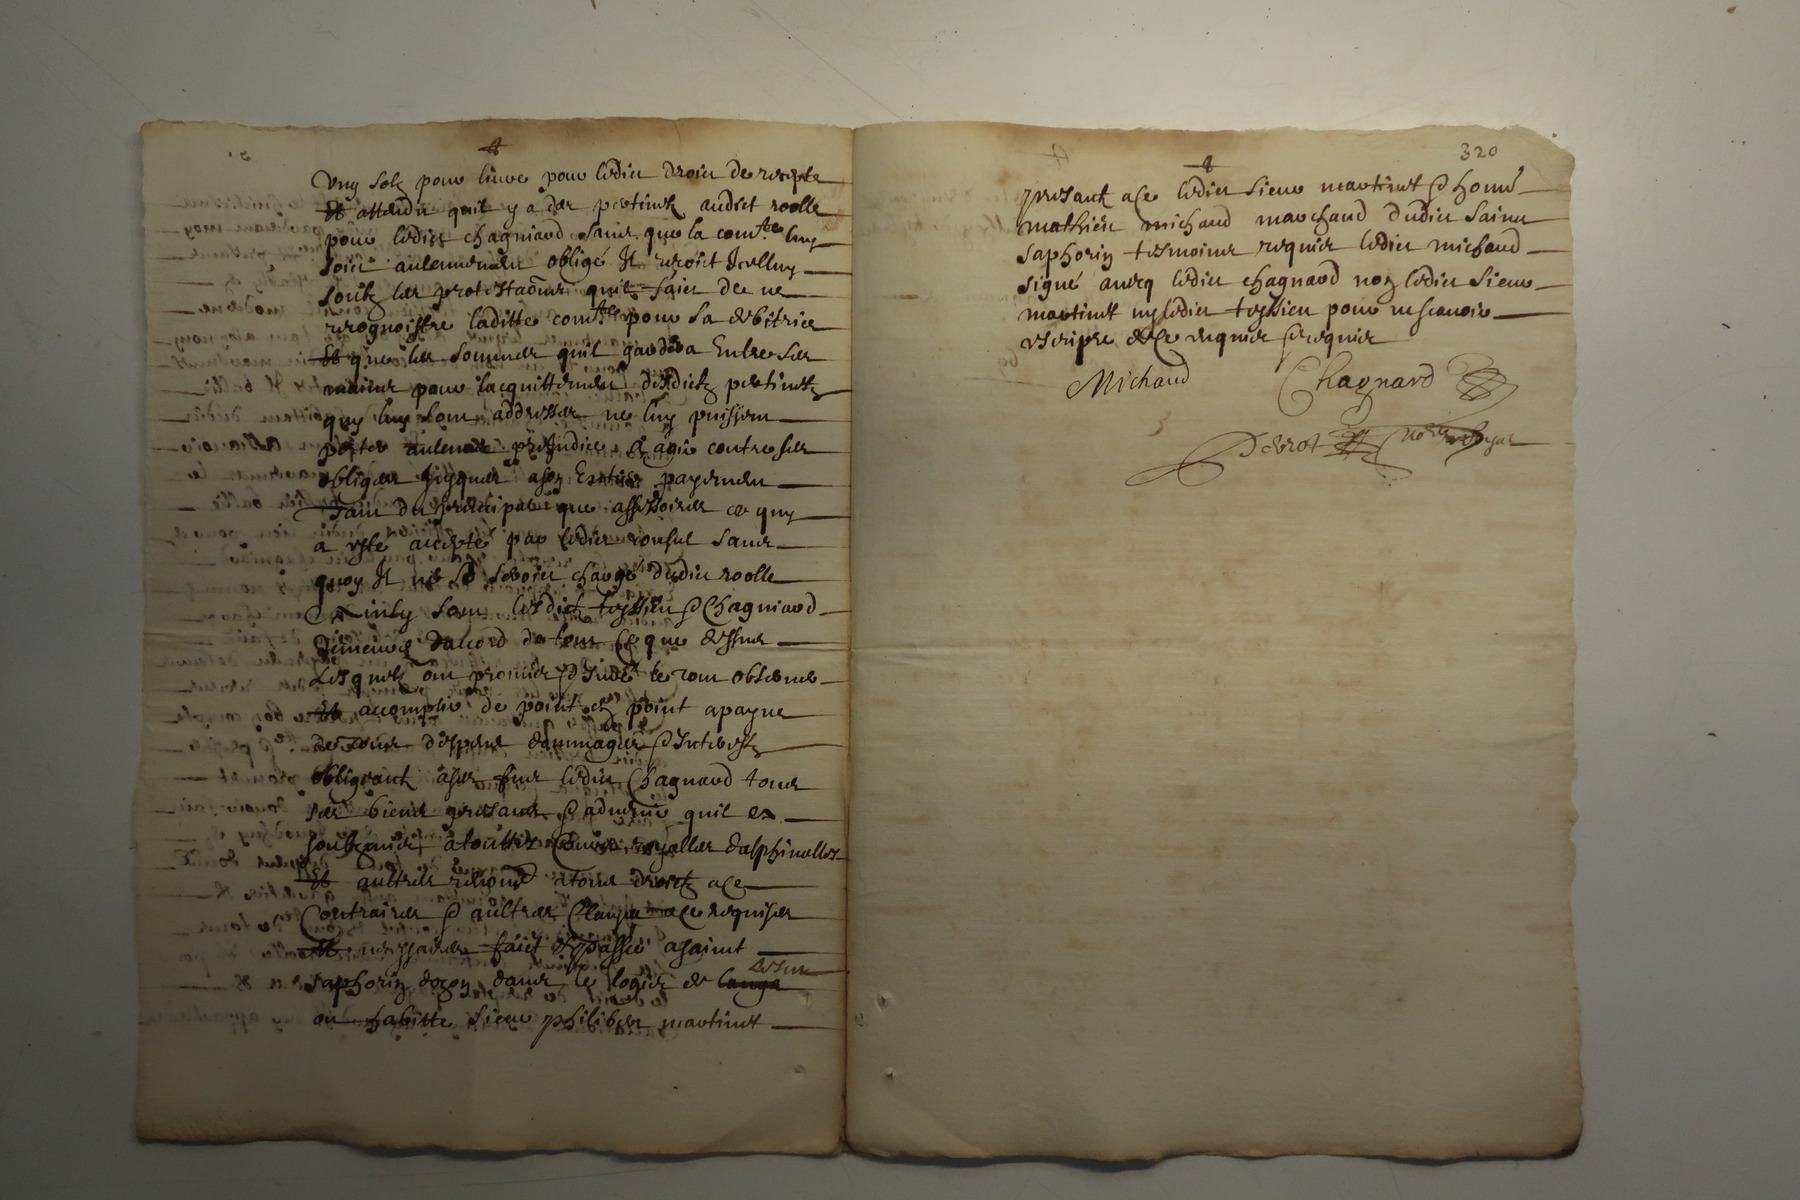 Ung solz pour livre pour ledict droict de recepte
Et attendu quil y a des partinetz audict roolle
pour ledict Chagniard sans que la com.te luy
soict aulcunement obligé Il reçoict Icelluy
soubz les protestaôns quil faict de ne
recognoistre laditte com.te pour sa debitrice
Et que les sommes quil gardera Entre ses
mains pour lacquittement desdictz partinetz
quy luy sont addressés ne luy puissent
porter aulcung preJudice & agir contre ses
obliges Jusques a son Entier payement
Tant du principal que assessoires ce quy
a esté accepté par ledict consul sans
quoy Il ne se seroict chargé dudict roolle
Ainsy sont lesdictz teyssieu & Chagniard
demeurés daccord de tout ce que dessus
Lesquelz ont promis & Juré le tout observer
Et accomplir de point en point a payne
de tous despens dommages & Interestz
obligeant a ses fins ledict Chagnard tous
ses biens presans & advenir quil a
soubzmis a touttes Cours royalles dalphinalles
Et aultres renonçé a tous droictz a ce
Contraires & aultres Clauses a ce requises
Et nessaires faict & passé a sainct
dessus
saphorin dozon dans le logis de lange
ou habitte sieur philibert martinet
4
320
presant a ce ledict sieur martinet & honn.
mathieu michaud marchand dudict sainct
saphorin tesmoins requis ledict michaud
signé avecq ledict Chagnard non ledict sieur
martinet ny ledict teyssieu pour ne scavoir
escripre de ce enquis & requis
Michaud Chagnard
Derrot no.re royal